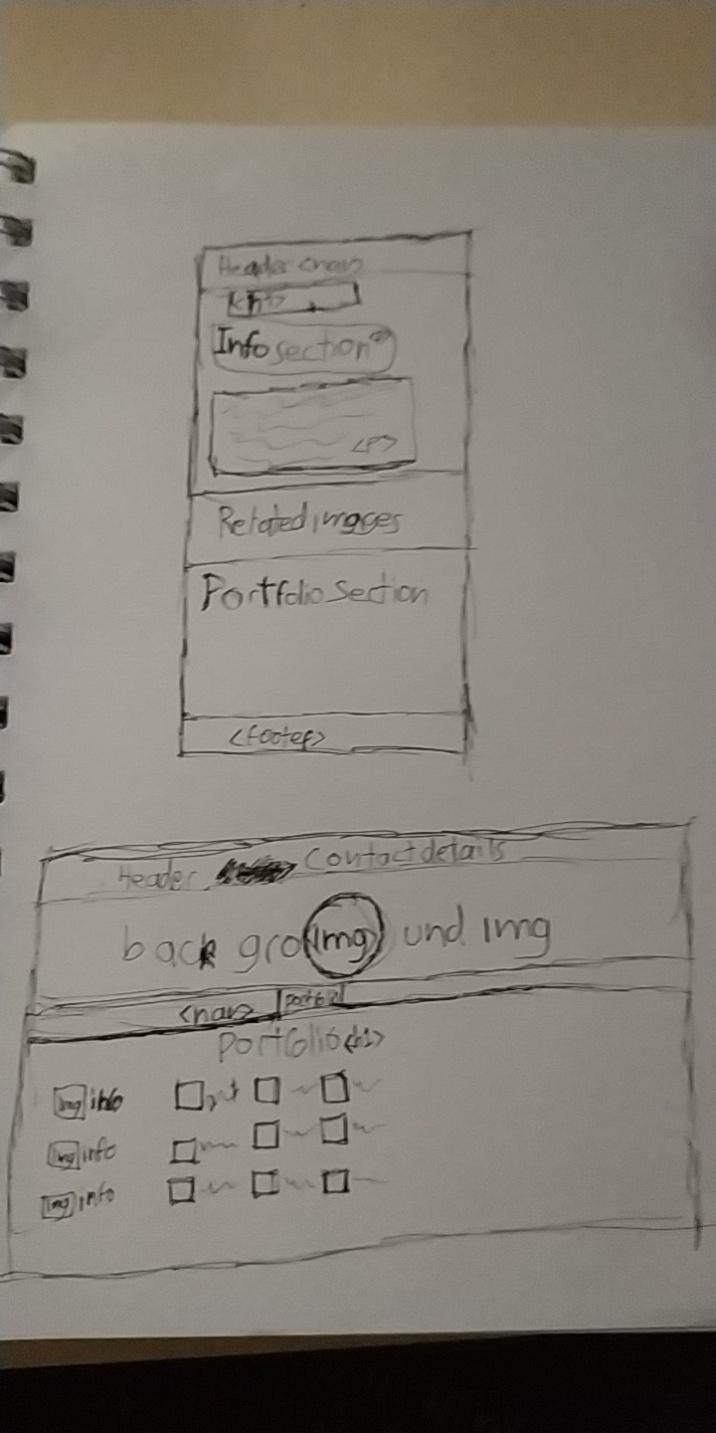 Header <nav>
<h1>
Info section
<p>
Related images
Portfolio Section
<footer>
Header Contact details
back gro img und img
<nav>
Portfolio <h1>
img info
img info
img info